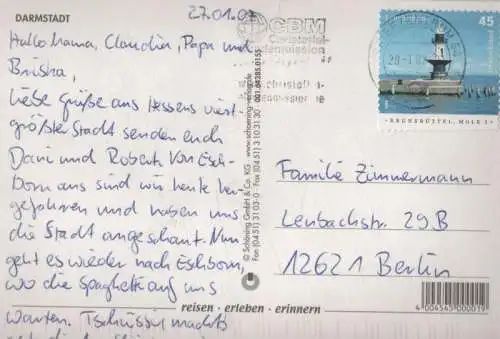 DARMSTADT
27.01.0
Hallo Mama, Claudia, Papa und
Briska,
Liebe Grüße aus Hessens viert-
größter Stadt senden euch
Dani und Robert. Von Esch-
born aus sind wir heute her-
gefahren und haben uns
die Stadt angeschaut. Nun
geht es wieder nach Eschborn,
wo die Spaghetti auf uns
warten. Tschüssi machts
© Schöning GmbH & Co. KG · www.schoening-verlag.de
Fax (04 51) 31 03-0 · Fax (04 51) 3 10 31 30
CBM
Christoffel-
Blindenmission
45
BRUNSBÜTTEL, MOLE 1
Familie Zimmermann
Lenbachstr. 29B
12621 Berlin
4 004545 000019
reisen · erleben · erinnern